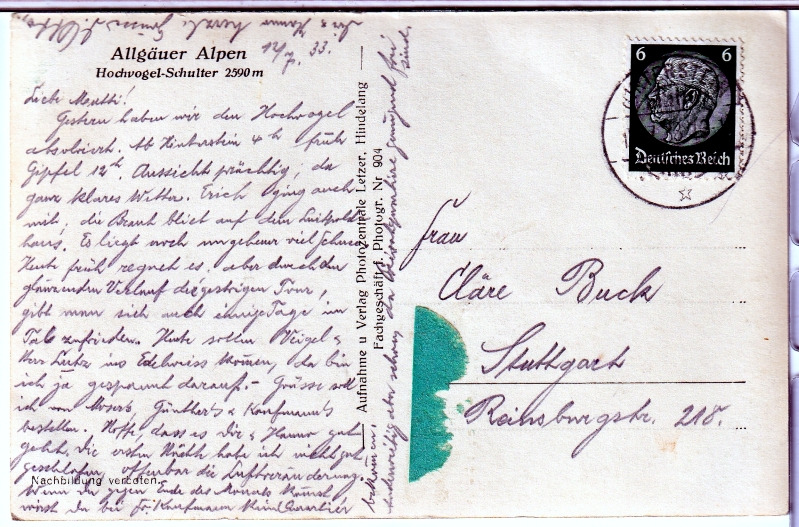 Allgäuer Alpen
Hochvogel-Schulter 2590 m
12/7. 33.
Liebe Mutti!
Gestern haben wir den Hochvogel
absolviert. Ab Hinterstein 4 h früh
Gipfel 12h. Aussicht prächtig, da
ganz klares Wetter. Erich ging auch
mit, die Braut blieb auf dem Luitpold
haus. Es liegt noch ungeheuer viel Schnee
Heute früh regnet es, aber durch den
glänzenden Verlauf der gestrigen Tour,
gibt man sich auch einige Tage im
Tal zufrieden. Heute sollen Weigel &
Herr Lutz ins Edelweiss kommen, da bin
ich ja gespannt darauf. - Grüsse soll
ich von Mosers, Günthers & Kaufmann's
bestellen. Hoffe, dass es Dir & Hanno gut
geht. Die ersten Nächte habe ich nicht gut
geschlafen, offenbar die Luftveränderung.
Wenn Du gegen Ende des Monats kommst
wirst Du bei Fr. Kaufmann kein Quartier
bekommen,
Nachbildung verboten.
Aufnahme u Verlag Photozentrale Letzer, Hindelang
Fachgeschäft f. Photogr. Nr 904
6 6
Deutsches Reich
Frau
Cläre Buck
Stuttgart
Reinsburgstr. 218.